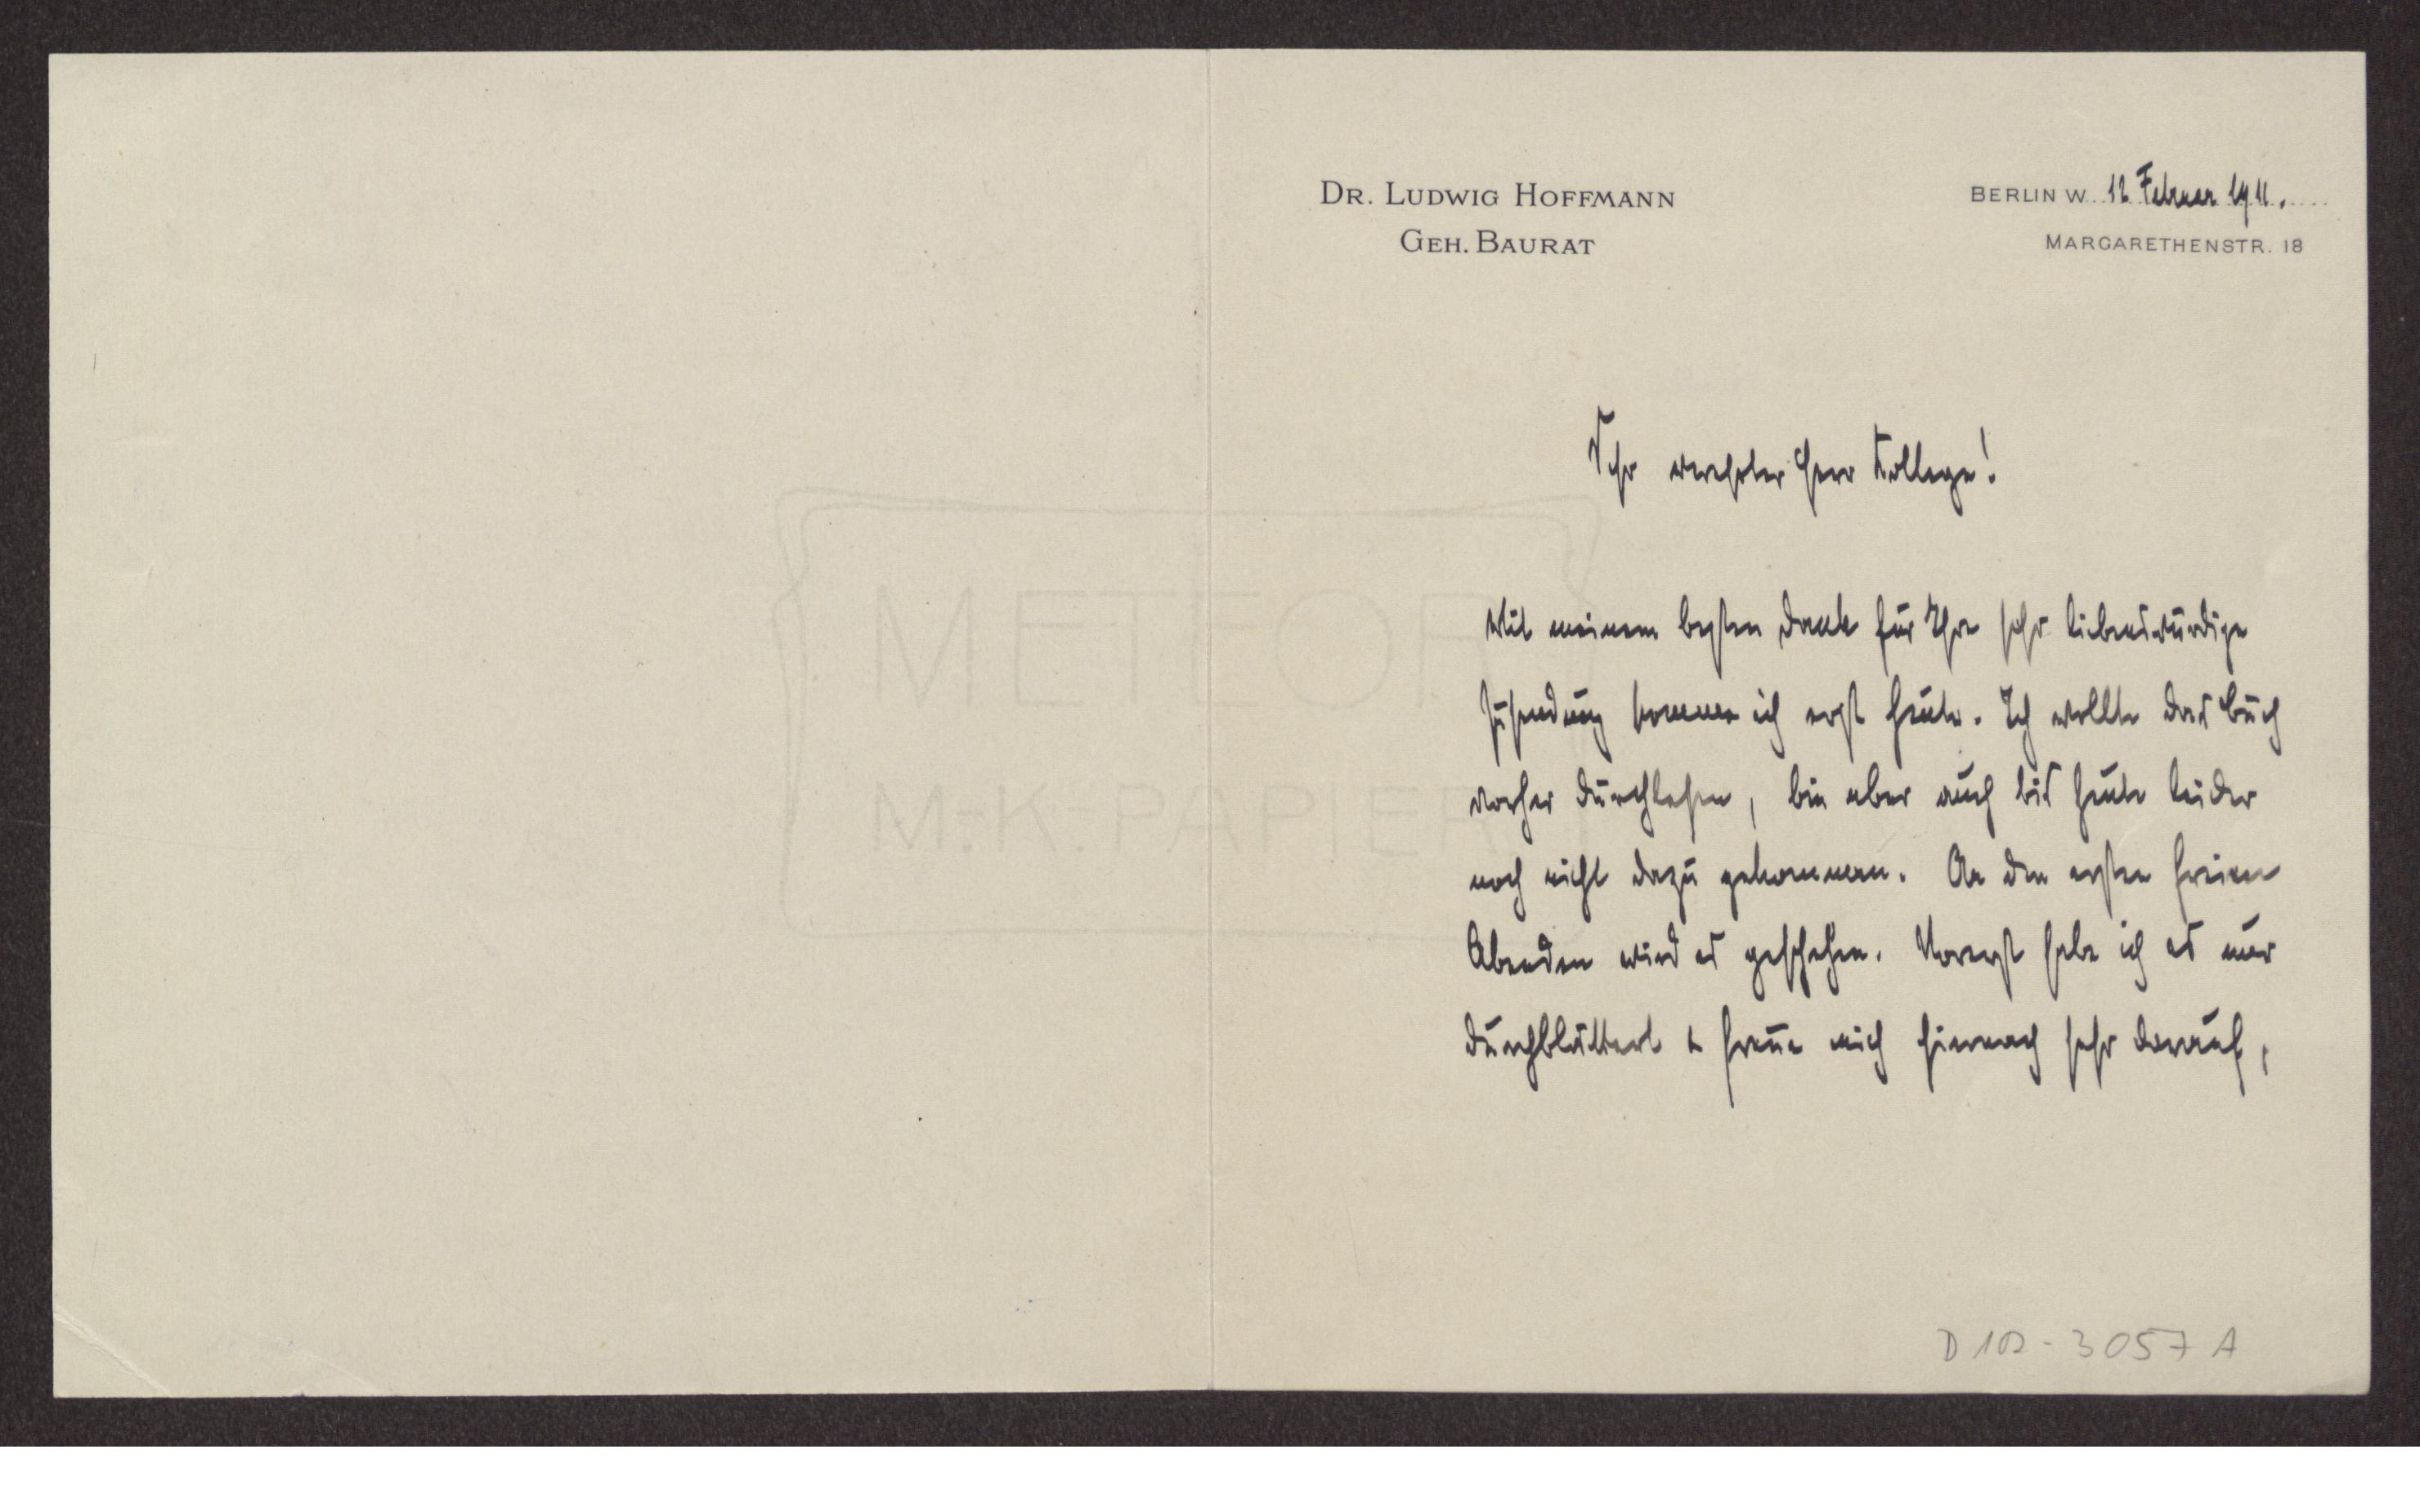 DR. LUDWIG HOFFMANN
GEH. BAURAT
BERLIN W. 12 Februar 1911.
MARGARETHENSTR. 18
Sehr verehrter Herr Kollege!
Mit meinem besten Dank für Ihre sehr liebenswürdige
Zusendung komme ich erst heute. Ich wollte das Buch
vorher durchlesen, bin aber auch bis heute leider
noch nicht dazu gekommen. An den ersten freien
Abenden wird es geschehen. Vorerst habe ich es nur
durchblättert & freue mich hiernach sehr darauf,
METEOR
M.K. PAPIER
D 102-3057 A